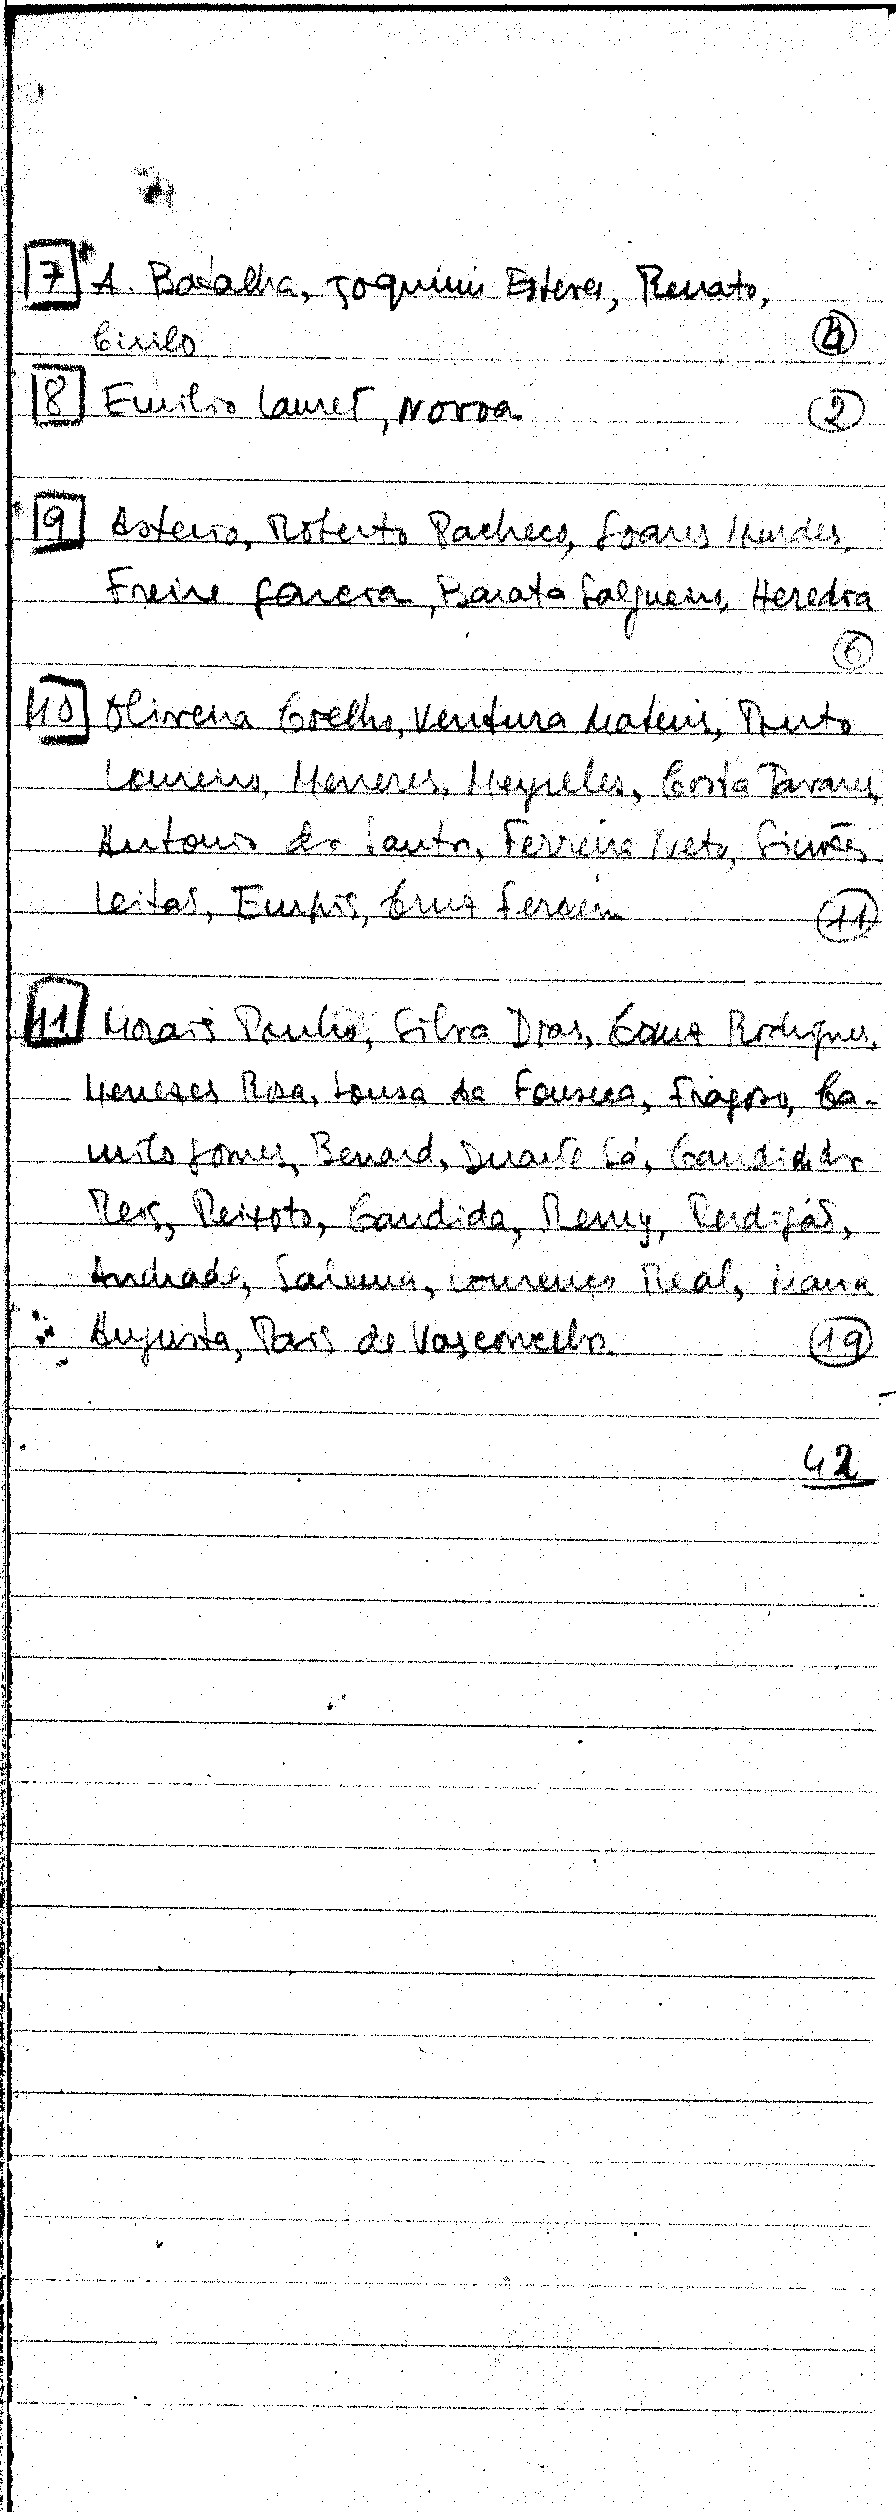 7 A. Batalha, Joquim Esteves, Renato,
Cirilo
4
8 Emilio Lauret, Noroa 2
9 Asterio, Roberto Pacheco, Soares Mendes,
Freire Garcia, Barata Salgueiro, Heredia
6
10 Oliveira Coelho, Ventura Mateus, Pinto
Loureiro, Meneres, Meyreles, Costa Tavares,
Antonio dos Santos, Ferreira Neto, Simões
Leitão, Empis, Cruz Ferreira 11
11 Morais Paulino, Silva Dias, Gama Rodrigues,
Meneses Rosa, Sousa da Fonseca, Fragoso, Ca-
milo Gomes, Benard, Duarte Sá, Candido dos
Reis, Peixoto, Candida, Remy, Perdigão,
Andrade, Salema, Lourenço Real, Maria
Augusta, Pais de Vasconcelos 19
42